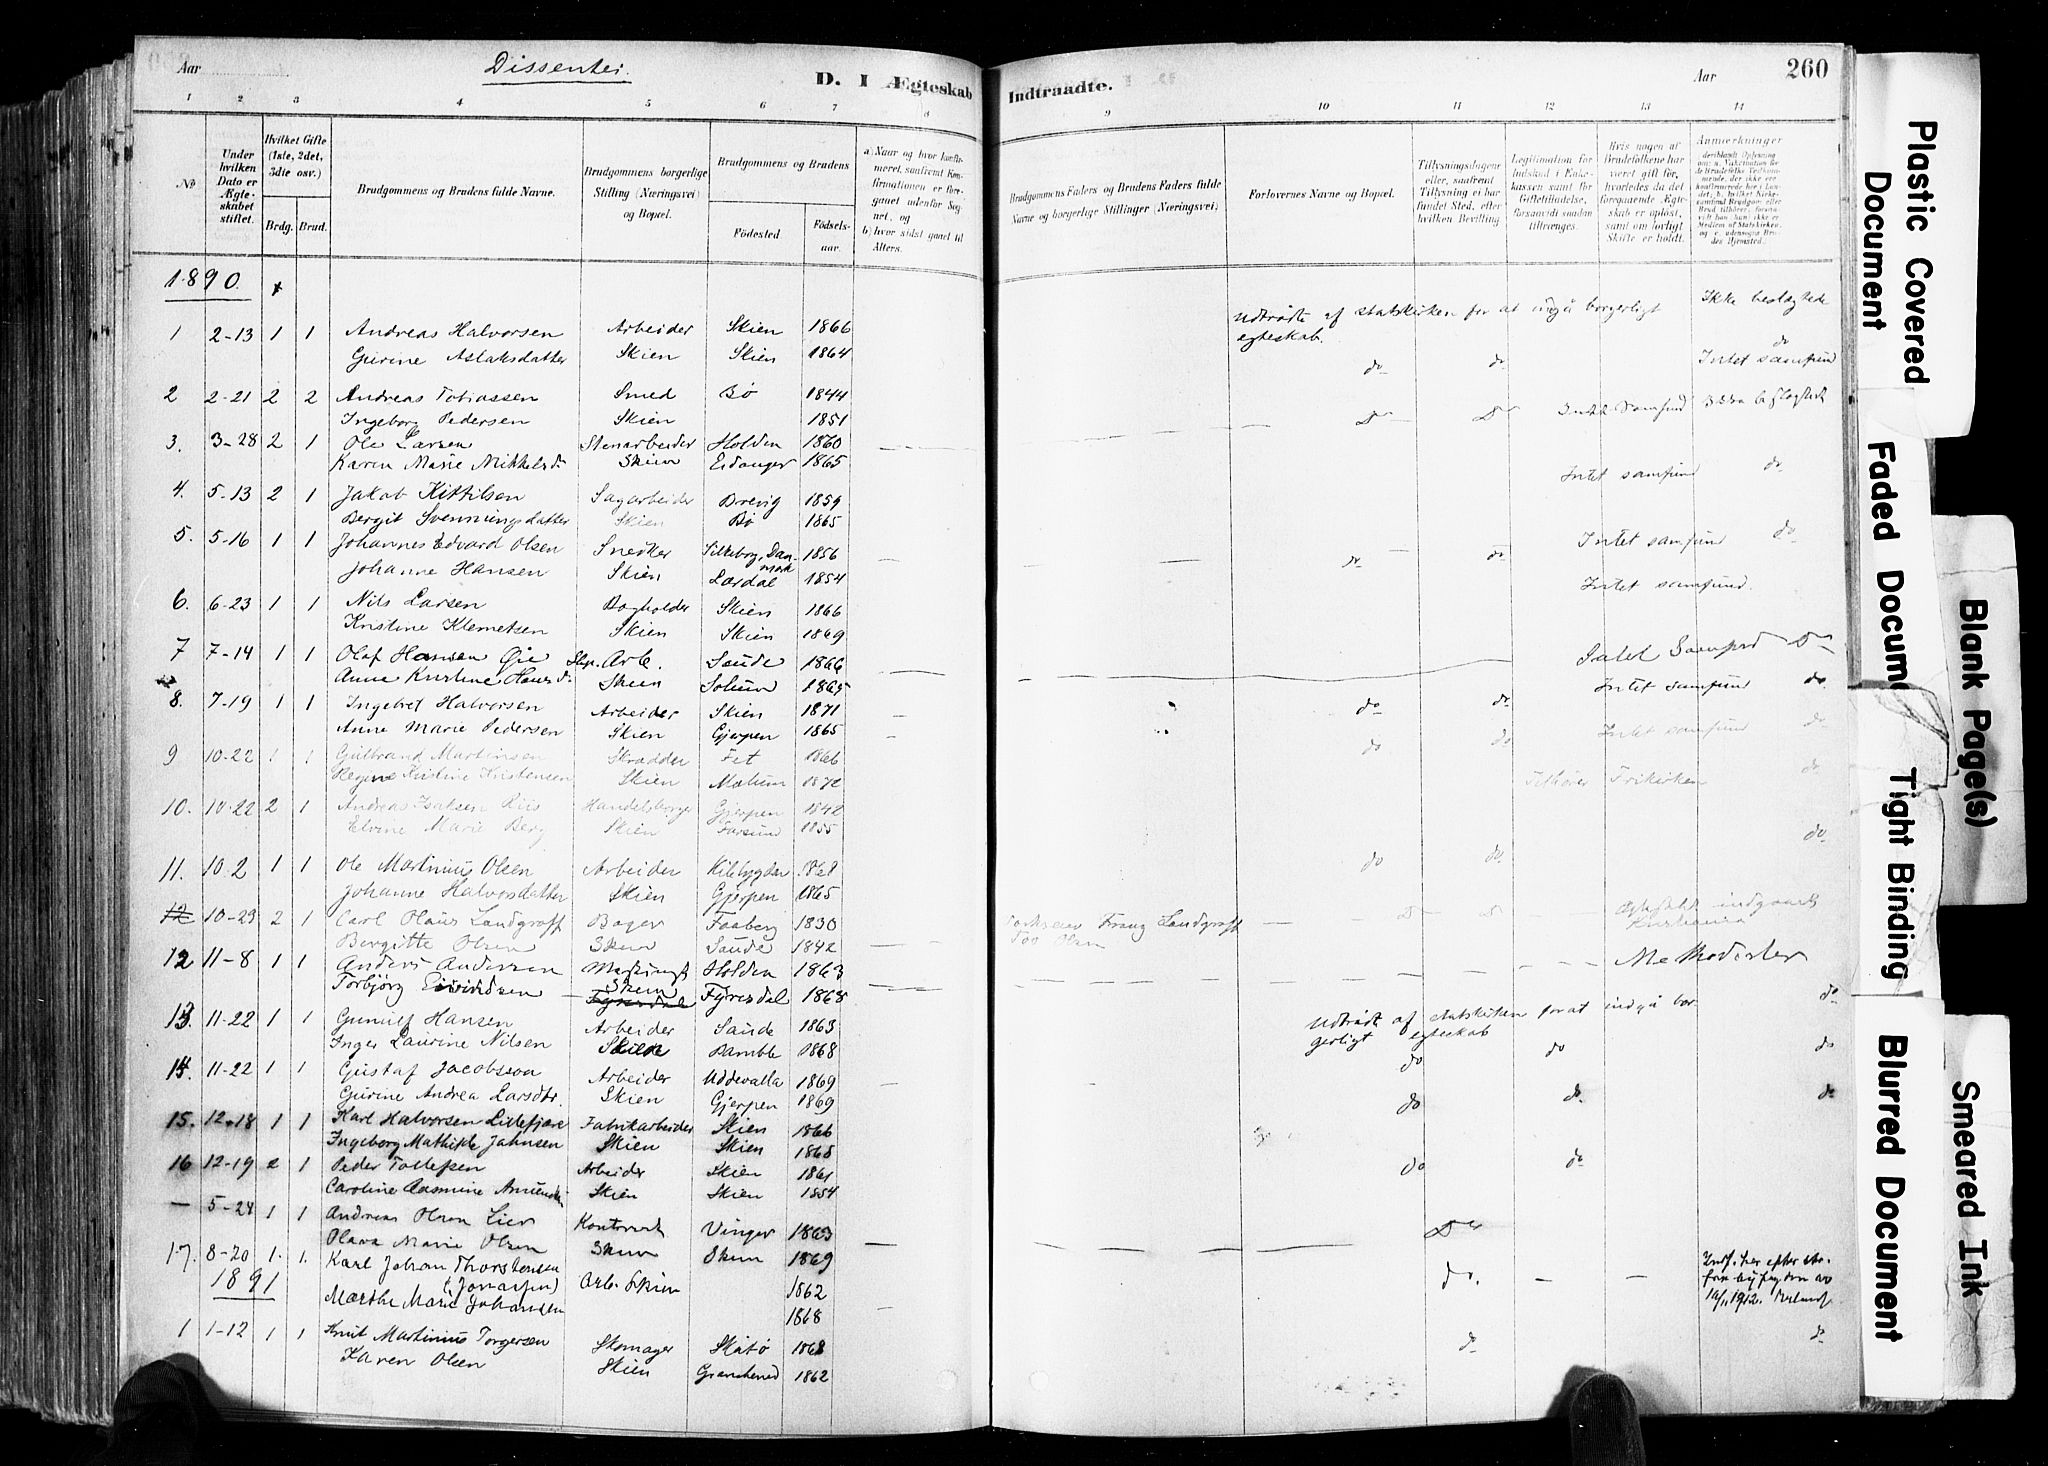 Aar
Dissenter.
D. I Ægteskab Indtraadte.
Aar
260
1 2 3 4 5 6 7 8 9 10 11 12 13 14
No
Under hvilken Dato er Ægteskabet stiftet.
Hvilket Gifte (1ste, 2det, 3die osv.)
Brdg. Brud.
Brudgommens og Brudens fulde Navne.
Brudgommens borgerlige Stilling (Næringsvei) og Bopæl.
Brudgommens og Brudens
Fødested. Fødselsaar.
a) Naar og hvor konfirmeret, saafremt Konfirmationen er foregaaet udenfor Sognet, og
b) hvor sidst gaaet til Alters.
Brudgommens Faders og Brudens Faders fulde Navne og borgerlige Stillinger (Næringsvei)
Forlovernes Navne og Bopæl.
Tillysningsdagene eller, saafremt Tillysning ei har fundet Sted, efter hvilken Bevilling.
Legitimation for Indskud i Enkekassen samt for Giftetilladelse, forsaavidt saadan tiltrænges.
Hvis nogen af Brudefolkene har været gift før, hvorledes da det foregaaende Ægteskab er opløst, samt om lovligt Skifte er holdt.
Anmerkninger
1890.
1 2-13 1 1 Andreas Halvorsen Arbeider Skien 1866
Udtrådte af statskirken for at indgå borgerligt egteskab. Ikke beslægtede
Gurine Aslaksdatter Skien Skien 1864 do do do Intet samfund
2 2-21 2 2 Andreas Tobiassen Smed Bø 1844
Ingeborg Pedersen Skien 1851
3. 3-28 2 1 Ole Larsen Stenarbeider Holden 1860
Karen Marie Mikkelsd. Skien Eidanger 1865 Intet samfund do
4. 5-13 2 1 Jakob Kittilsen Sagarbeider Brevig 1859
Bergit Svenningsdatter Skien Bø 1865
5. 5-16 1 1 Johannes Edvard Olsen Snedker Silkeborg, Danmark 1856 do do Intet samfund do
Johanne Hansen Skien Lærdal 1854 Intet samfund.
6. 6-23 1 1 Nils Larsen Bogholder Skien 1866
Kristine Klemetsen Skien Skien 1869
7 7-14 1 1 Olaf Hansen Øie Arb. Saude 1866 Intet Samfund Do
Anne Kristine Hansd. Skien Solum 1865 Intet samfund do.
8. 7-19 1 1 Ingebret Halvorsen Arbeider Skien 1871 do do
Anne Marie Pedersen Skien Gjerpen 1865 Intet samfund do
9 10-22 1 1 Gulbrand Martinsen Skrædder Fet 1866 do do
Kristine Kristensen Skien Mælum 1872 Tilhører Frikirken do
10. 10-22 2 1 Andreas Isaksen Riis Handelsborger Gjerpen 1842
Elvine Marie Berg Skien Farsund 1855 do
11. 10-2 1 1 Ole Martinius Olsen Arbeider Kilebygden 1868 do do
Johanne Halvorsdatter Skien Gjerpen 1865
12 10-23 2 1 Carl Olaus Landgraff Bager Faaberg 1830 Franz Landgraff
Bergitte Olsen Skien Saude 1842 Tov Olsen
12 11-8 1 1 Anders Andersen Holden 1863 Methodister
Torbjørg Eivindsen Skien Fyresdal Fyresdal 1868
13. 11-22 1 1 Gunulf Hansen Arbeider Saude 1863 Udtrådt af statskirken for at indgå borgerligt egteskab do
Inger Laurine Nilsen Skien Bamble 1868 do do do
14. 11-22 1 1 Gustaf Jacobsson Arbeider Uddevalla 1869
Gurine Andrea Larsdtr. Skien Gjerpen 1869 do do. do
15. 12-18 1 1 Karl Halvorsen Lillefjære Fabrikarbeider Skien 1866
Ingeborg Mathilde Jahnsen Skien Skien 1868
16 12-19 2 1 Peder Tollefsen Arbeider Skien 1861 do do
Caroline Rasmine Amunds. Skien Skien 1854
— 5-24 1 1 Andreas Olsen Lier Vinger 1863 Do
Olava Marie Olsen Skien Skien 1869
17. 8-20 1. 1. Karl Johan Thorstensen (Jonassen) Arb. Skien 1862 do. — —
1891
Marthe Marie Johansen 1868
1 1-12 1 1 Knut Martinius Torgersen Skomager Skåtø 1868 do do
Karen Olsen Skien 1862
Plastic Covered Document
Faded Document
Blank Page(s)
Tight Binding
Blurred Document
Smeared Ink